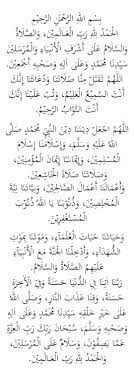 بِسْمِ اللهِ الرَّحْمٰنِ الرَّحِيْمِ
الْحَمْدُ لِلّٰهِ رَبِّ الْعَالَمِيْنَ، وَالصَّلَاةُ
وَالسَّلَامُ عَلَى أَشْرَفِ الْأَنْبِيَاءِ وَالْمُرْسَلِيْنَ
سَيِّدِنَا مُحَمَّدٍ وَعَلَى آلِهِ وَصَحْبِهِ أَجْمَعِيْنَ.
اللّٰهُمَّ تَقَبَّلْ مِنَّا صَلَاتَنَا وَدُعَاءَنَا إِنَّكَ
أَنْتَ السَّمِيْعُ الْعَلِيْمُ، وَتُبْ عَلَيْنَا إِنَّكَ
أَنْتَ التَّوَّابُ الرَّحِيْمُ.
اللّٰهُمَّ اجْعَلْ دِيْنَنَا دِيْنَ النَّبِيِّ مُحَمَّدٍ صَلَّى
اللهُ عَلَيْهِ وَسَلَّمَ، وَإِسْلَامَنَا إِسْلَامَ
الْمُسْلِمِيْنَ، وَإِيْمَانَنَا إِيْمَانَ الْمُؤْمِنِيْنَ،
وَأَعْمَالَنَا أَعْمَالَ الصَّالِحِيْنَ، وَنِيَّاتِنَا نِيَّةَ
الْمُخْلِصِيْنَ، وَذُنُوْبَنَا يَا اللهُ ذُنُوْبَ
الْمُسْتَغْفِرِيْنَ.
وَحَيَاتَنَا حَيَاتَ الْعُلَمَآءِ، وَمَوْتَنَا مَوْتَ
الشُّهَدَاءِ، وَأَدْخِلْنَا الْجَنَّةَ مَعَ الْأَنْبِيَآءِ
عَلَيْهِمُ الصَّلَاةُ وَالسَّلَامُ.
رَبَّنَا آتِنَا فِي الدُّنْيَا حَسَنَةً وَفِي الْآخِرَةِ
حَسَنَةً، وَقِنَا عَذَابَ النَّارِ، وَصَلَّى اللهُ
عَلَى خَيْرِ خَلْقِهِ سَيِّدِنَا مُحَمَّدٍ وَعَلَى آلِهِ
وَصَحْبِهِ وَسَلَّمَ، سُبْحَانَ رَبِّكَ رَبِّ الْعِزَّةِ
عَمَّا يَصِفُوْنَ، وَسَلَامٌ عَلَى الْمُرْسَلِيْنَ،
وَالْحَمْدُ لِلّٰهِ رَبِّ الْعَالَمِيْنَ.